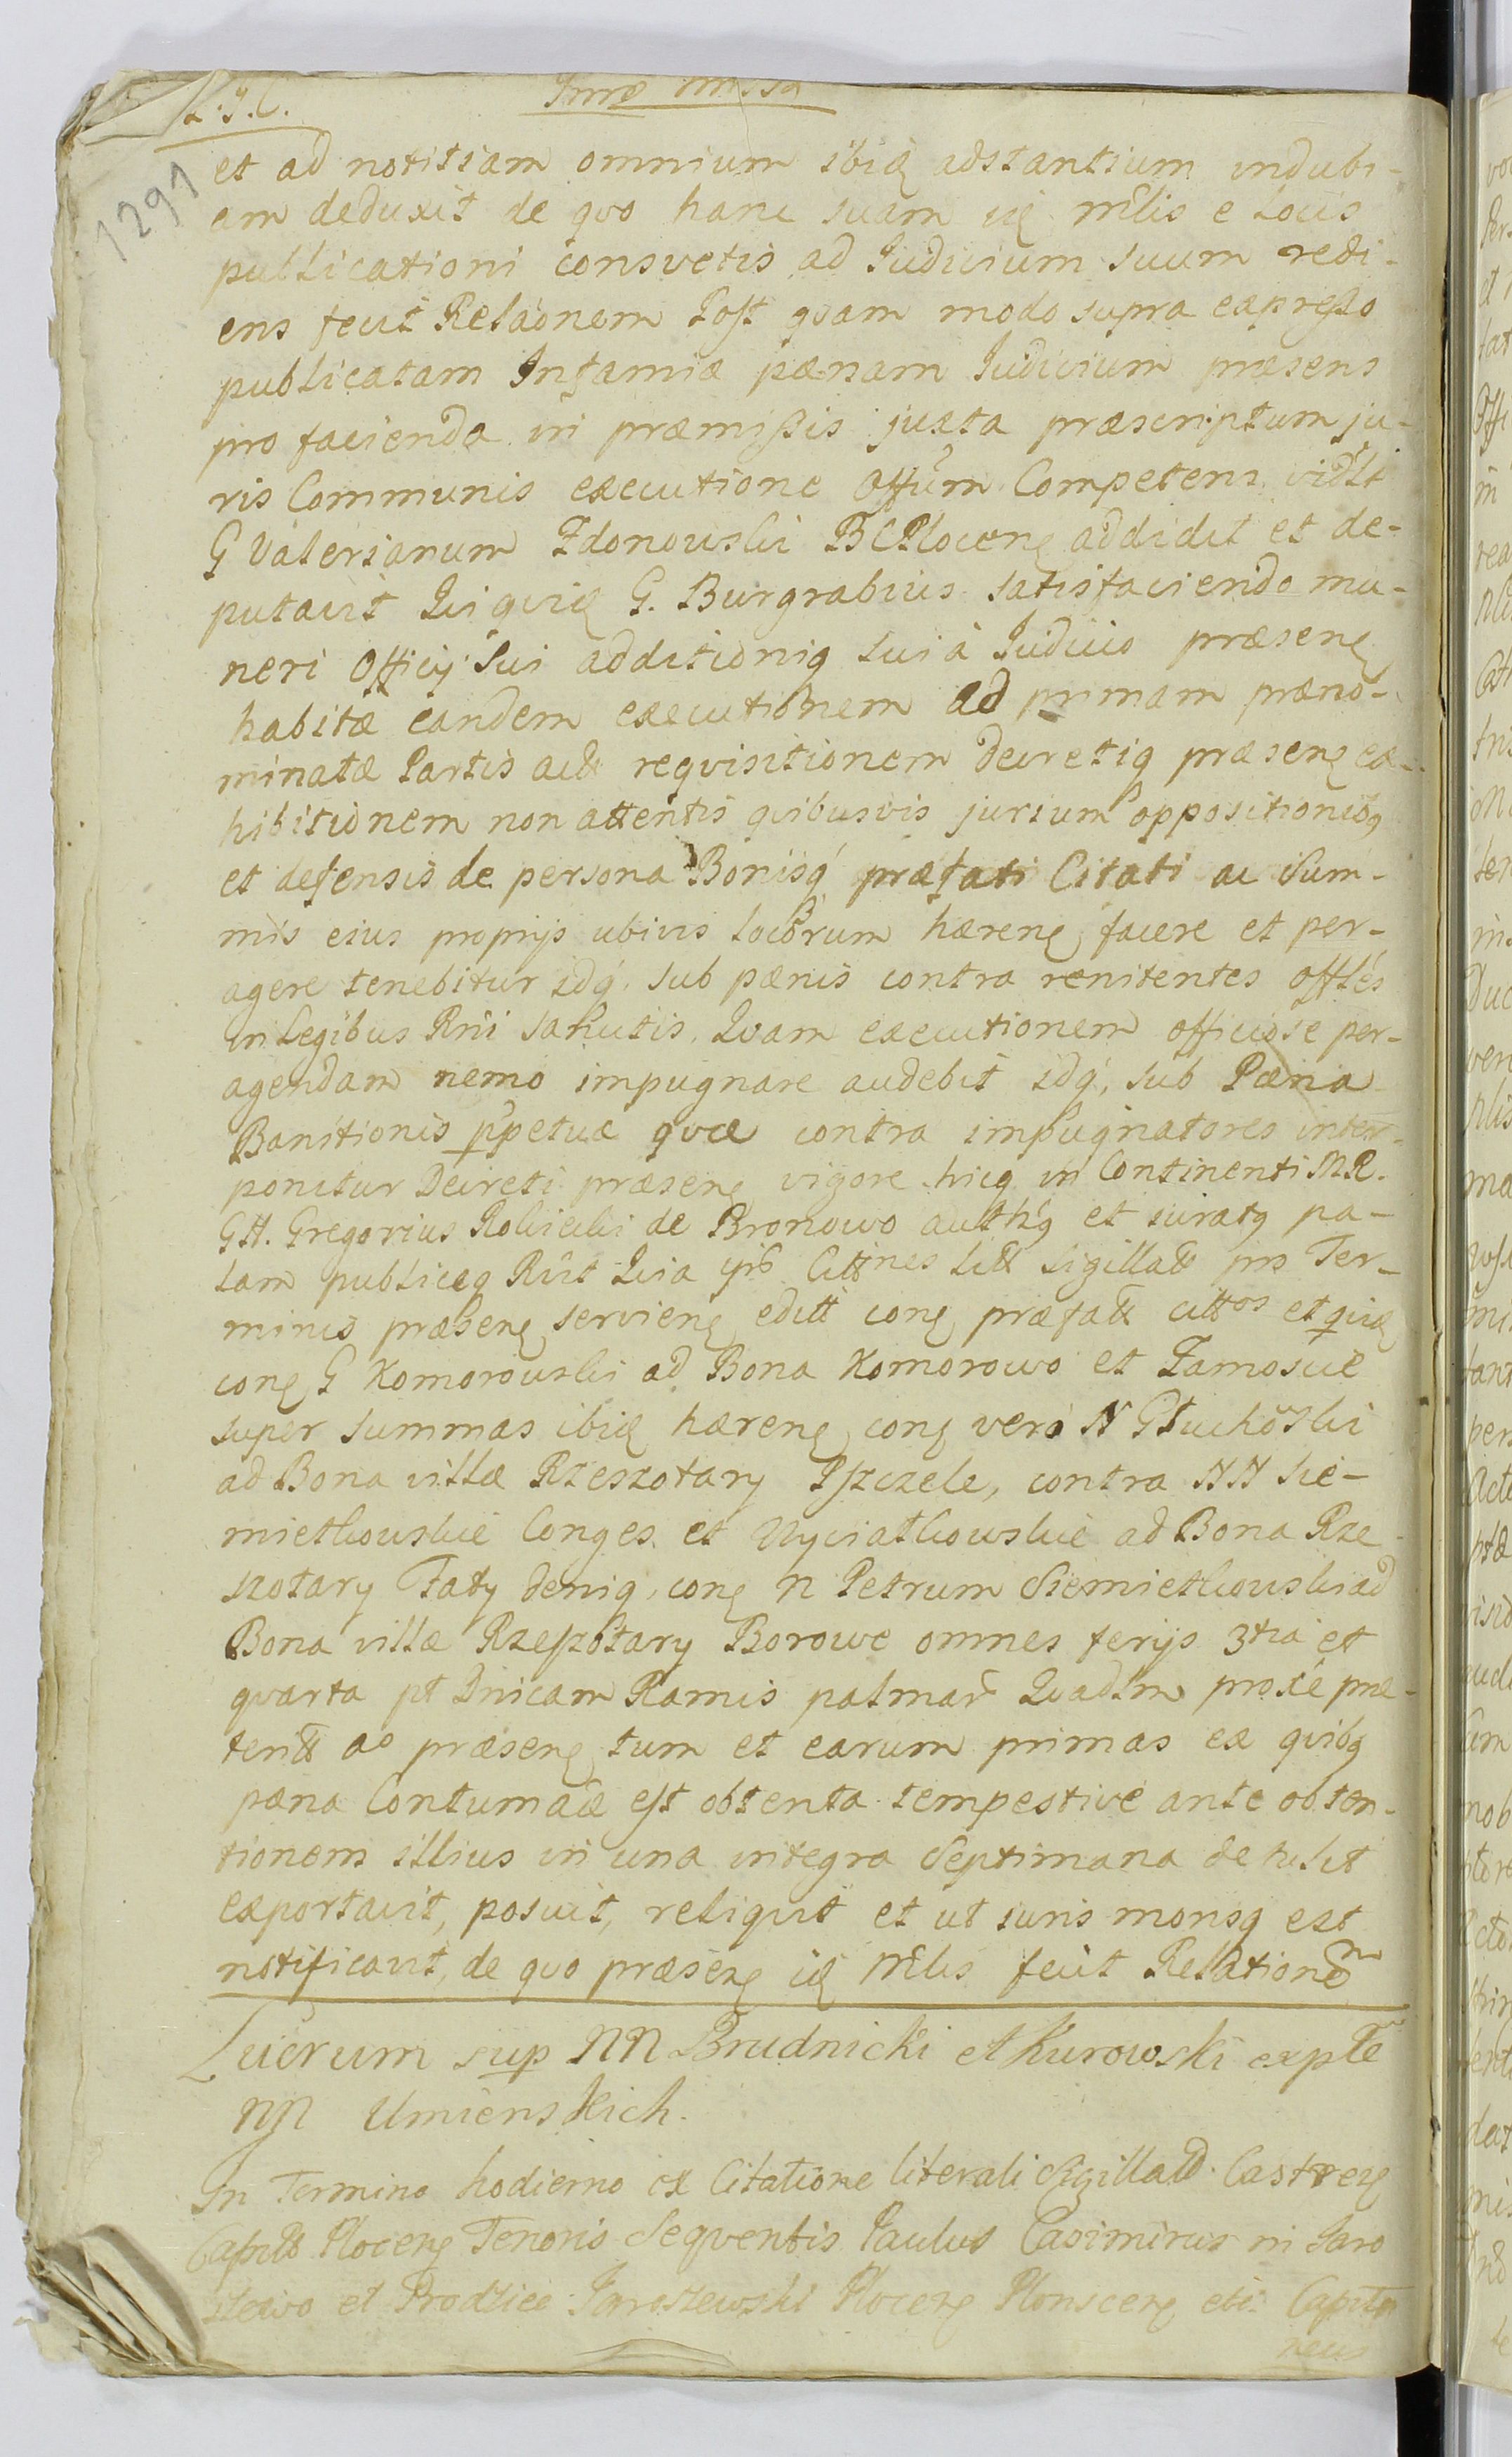 1291
et ad notitiam omnium ibiq adstantium indubi-
am deduxit de qvo hanc suam iq mĩlis e Locis
publicationi consvetis ad Judicium suum redi-
ens fecit Relãonem Post qvam modo supra expresso
publicatam Infamiæ pænam Judicium præsens
pro facienda in præmissis juxta præscriptum ju-
ris Communis executione Offũm Competens vidlt
G Valerianum Zdonowski B C Plocen addidit et de-
putavit Qui qviq G. Burgrabius satisfaciendo mu-
neri Officij Sui additioniq sui à Judicio præsen
habitæ eandem executionem ad primam præno-
minatæ Partis act reqvisitionem decretiq præsen ex-
hibitionem non attentis qvibusvis jurium oppositionibq
et defensis de persona Bonisq præfati Citati ac Sum-
mis eius proprijs ubivis locorum hæren facere et per-
agere tenebitur idq sub pænis contra renitentes Offles
in Legibus Rni sancitis. Qvam executionem officiose per-
agendam nemo impugnare audebit idq, sub Pæna
Banitionis ppetuæ qvæ contra impugnatores inter-
ponitur Decreti præsen vigore hicq in Continenti M R.
G H. Gregorius Robiecki de Bronowo authq et juratq pa-
lam publiceq Rũt Quia Citt nes litt Sigillatt pro Ter-
minis præsen servien editt con præfatt cittos et qviq
con G Komorowski ad Bona Komorowo et Zamoscie
super Summas ibiq hæren con vero N Głuchõski
ad Bona villæ Rzeszotary Pszczele, contra NN Sie-
mietkowskie Conges et Uyciatkowskie ad Bona Rze-
szotary Faty deniq, con N Petrum Siemietkowski ad
Bona villæ Rzeszotary Borowe omnes ferijs 3tia et
qvarta pt Dnicam Ramis palmar Qvadlm proxe præ-
teritt ao præsen tum et earum primas ex qvibq
pæna Contumaciæ est obtenta tempestive ante obten-
tionem illius in una integra Septimana detulit
exportavit, posuit, reliqvit et ut juris morisq est
notificavit, de qvo præsen iq Mĩlis fecit Relationem
Lucrum sup NN Brudnicki et Kurowski ex pte
NN Umienskich.
In Termino hodierno ex Citatione literali Sigillatt. Castren
Capitt Plocen Tenoris Seqventis Paulus Casimirus in Jaro
szewo et Prodzice Jaroszewski Plocen Plonscen etc Capita
neus